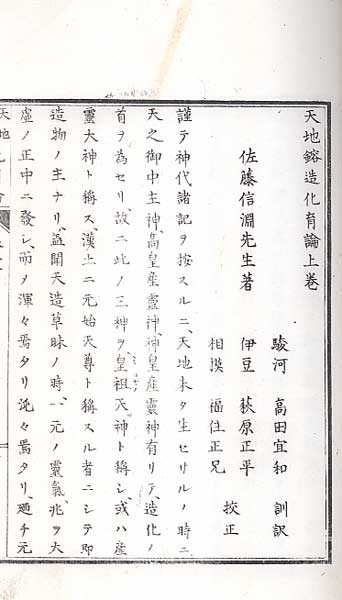 天地鎔造化育論上巻
佐藤信淵先生著
駿河 高田宜和 訓訳
伊豆 萩原正平
相摸 福住正兄 挍正
謹テ神代諸記ヲ按スルニ、天地未タ生セサルノ時ニ
天之御中主神、高皇産靈神、神皇産靈神有リテ、造化ノ
首ヲ為セリ、故ニ此ノ三神ヲ、皇祖天神ト稱シ、或ハ産
靈大神ト稱ス、漢土ニ元始天尊ト稱スル者ニシテ即
造物ノ主ナリ、蓋聞天造草昧ノ時、一元ノ靈氣、兆ヲ大
虚ノ正中ニ發シ、而ヲ渾々焉タリ沌々焉タリ、廼チ元